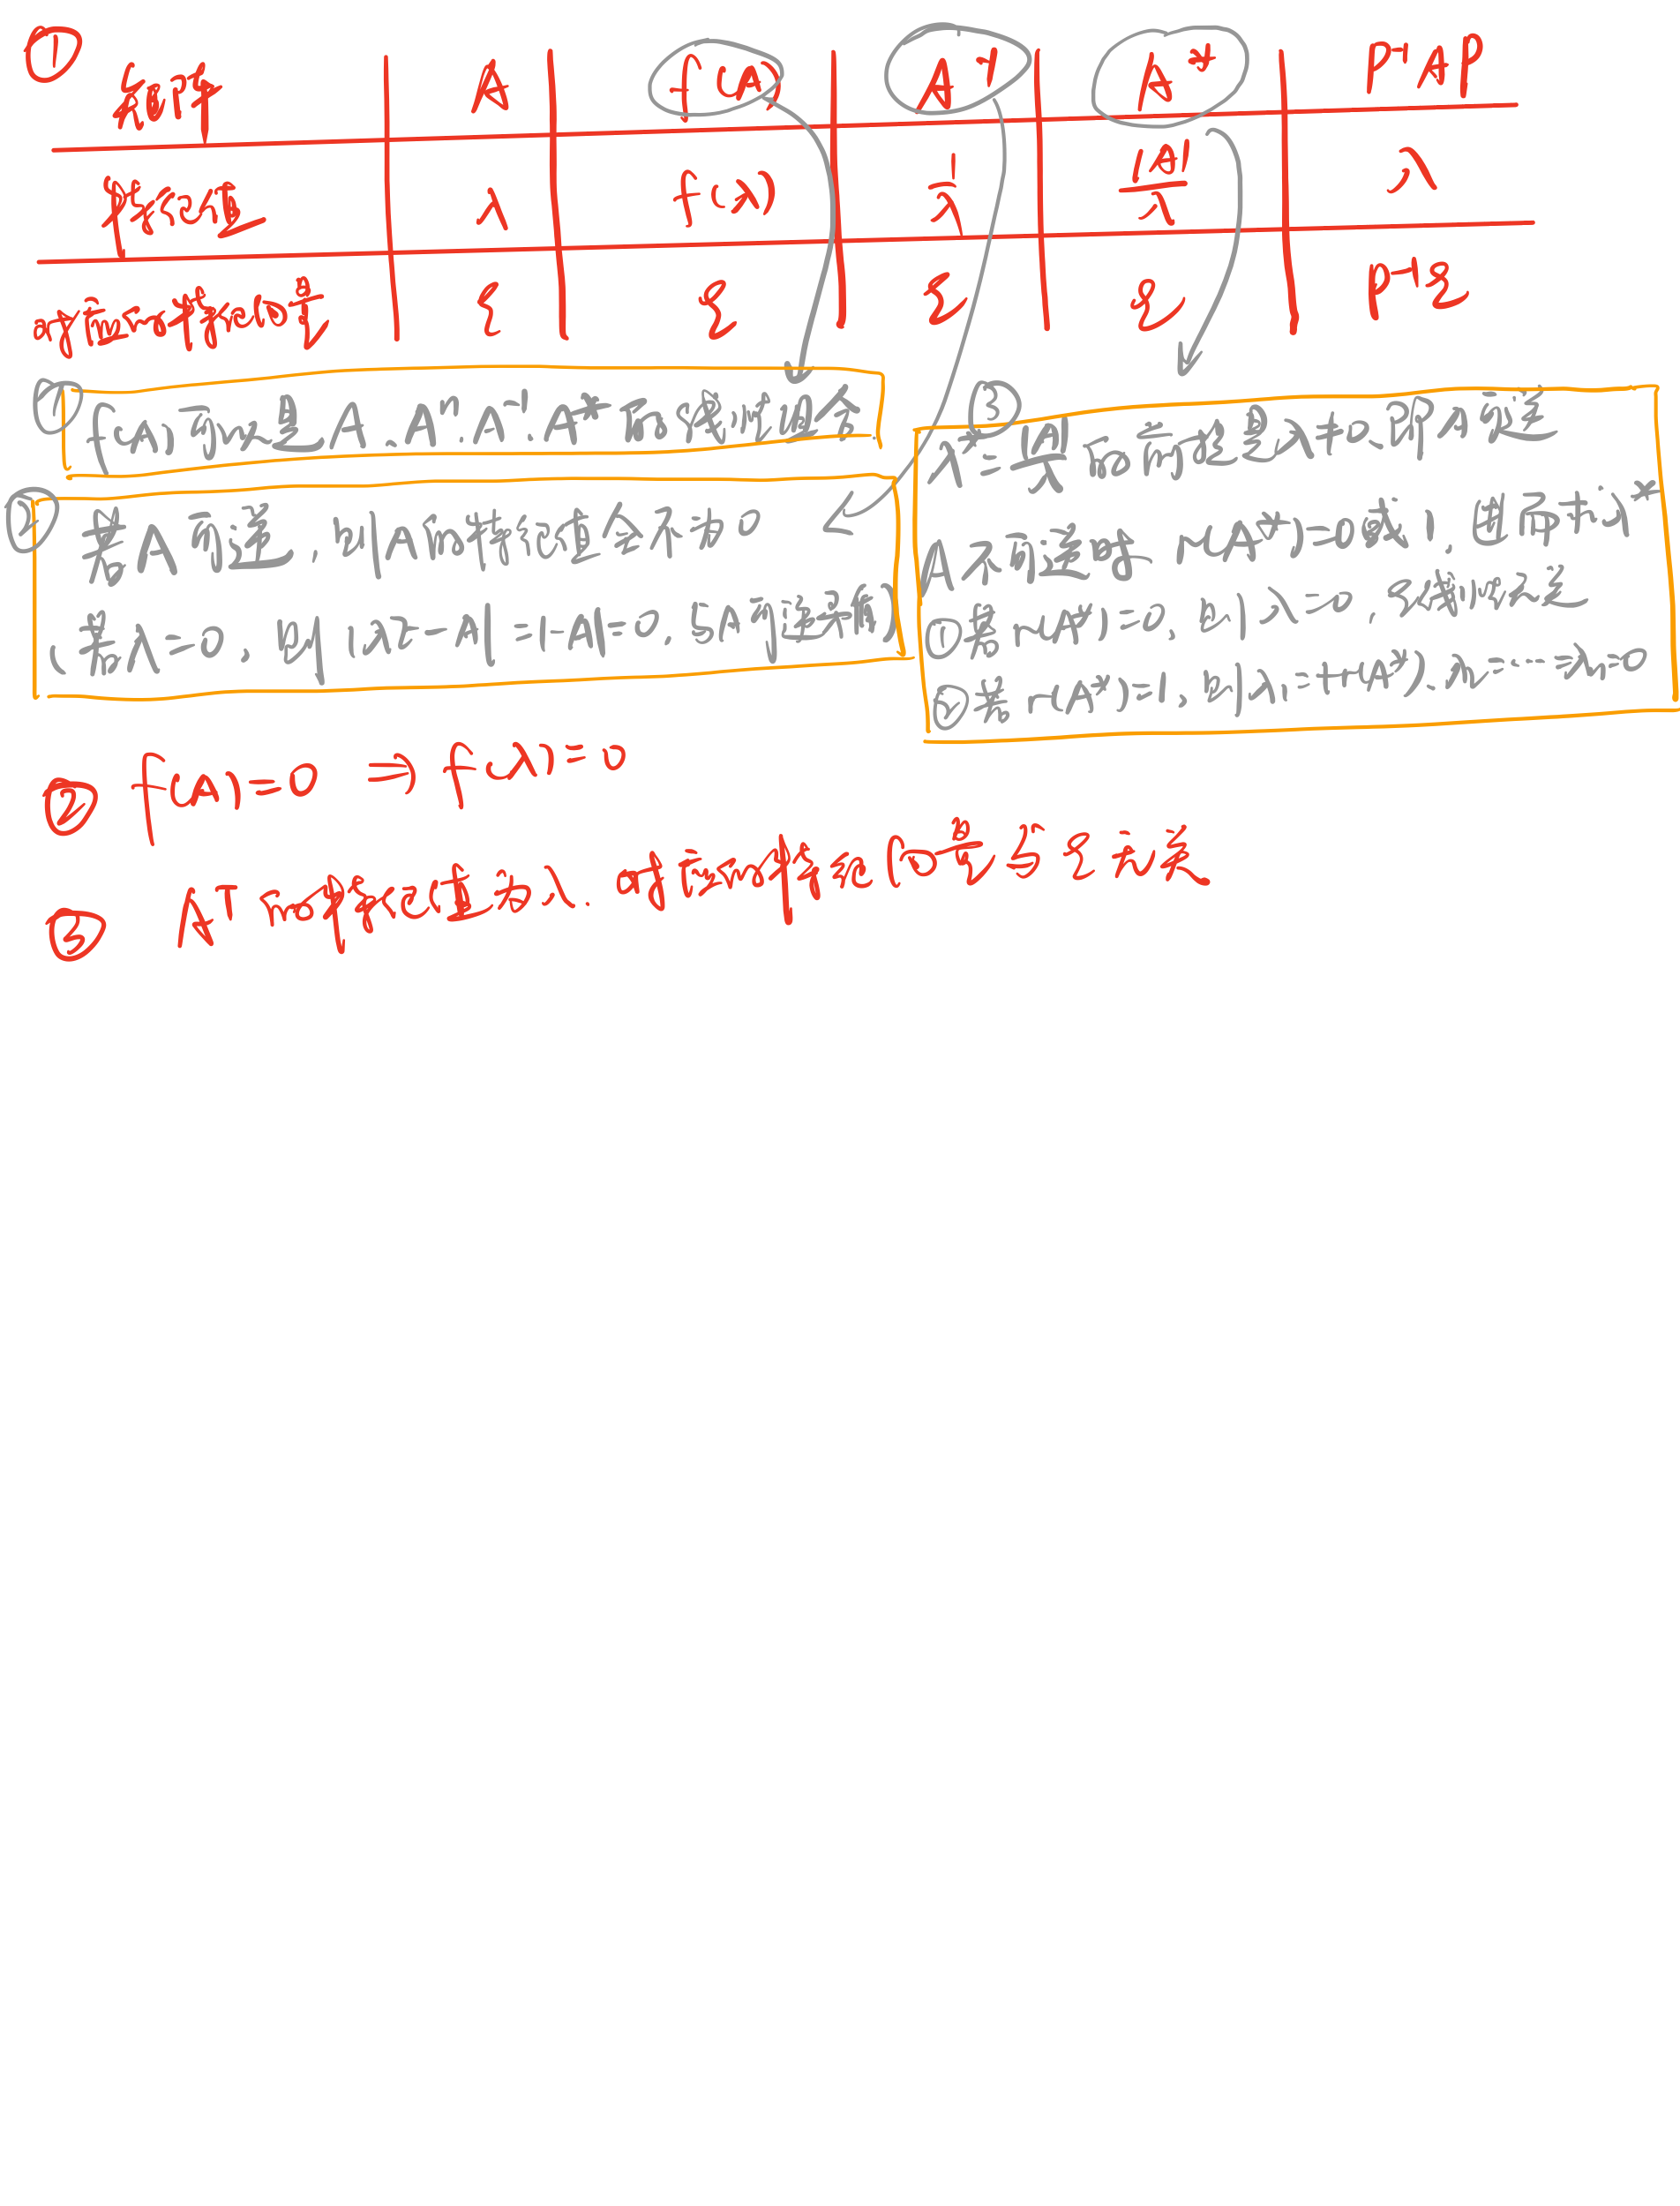 ① 矩阵 A f(A) A⁻¹ A* P⁻¹AP
特征值 λ f(λ) 1/λ |A|/λ λ
对应的特征向量 ξ ξ ξ ξ P⁻¹ξ
① f(A)可以是A、Aⁿ、A⁻¹、A*的线性组合.
② 若A可逆,则A的特征值全不为0
(若λ=0,则|λE-A|=|-A|=0,与A可逆矛盾)
③ λ*=|A|/λ的前提是λ≠0,即A可逆
A不可逆时,r(A*)=0或1,用秩求λ*
①若r(A*)=0,则λ=0,n线性无关
②若r(A*)=1,则λ₁=tr(A*)、λ₂=…=λn=0
② f(A)=0 ⇒ f(λ)=0
③ Aᵀ的特征值为λ.对应的特征向量与ξ无关